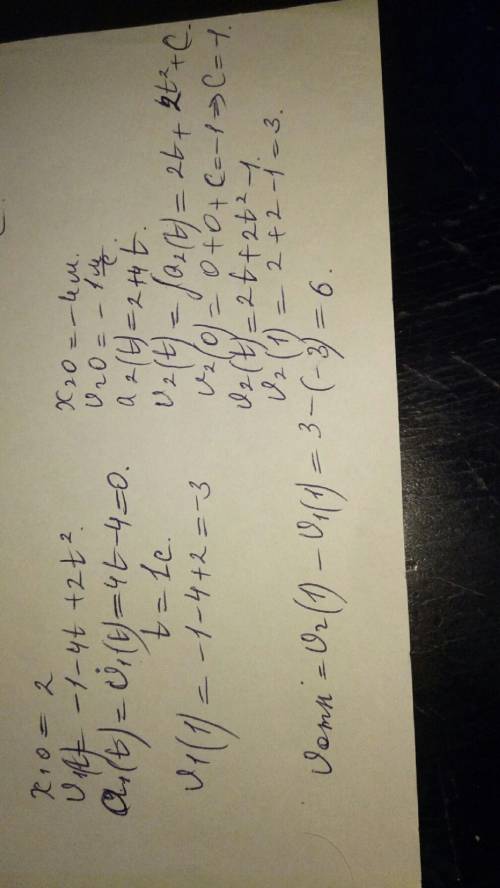 x₁₀ = 2
v₁(t) = -1-4t+2t².
a₁(t) = v̇₁(t) = 4t-4=0.
t = 1c.
v₁(1) = -1-4+2=-3
x₂₀ = -4м.
v₂₀ = -1 м/с
a₂(t) = 2+4t.
v₂(t) = ∫a₂(t) = 2t + 2t²+C.
v₂(0) = 0+0+C=-1 ⇒ C=-1.
v₂(t) = 2t+2t²-1.
v₂(1) = 2+2-1=3.
vотн = v₂(1) - v₁(1) = 3-(-3) = 6.